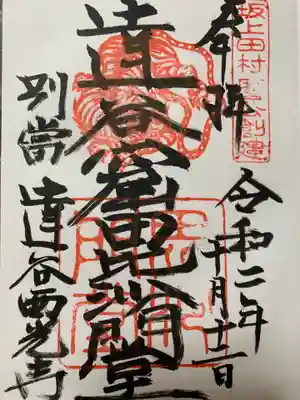 奉拝
坂上田村麿公創建
令和二年
十月廿二日
達谷窟毘沙門堂
別當
達谷西光寺